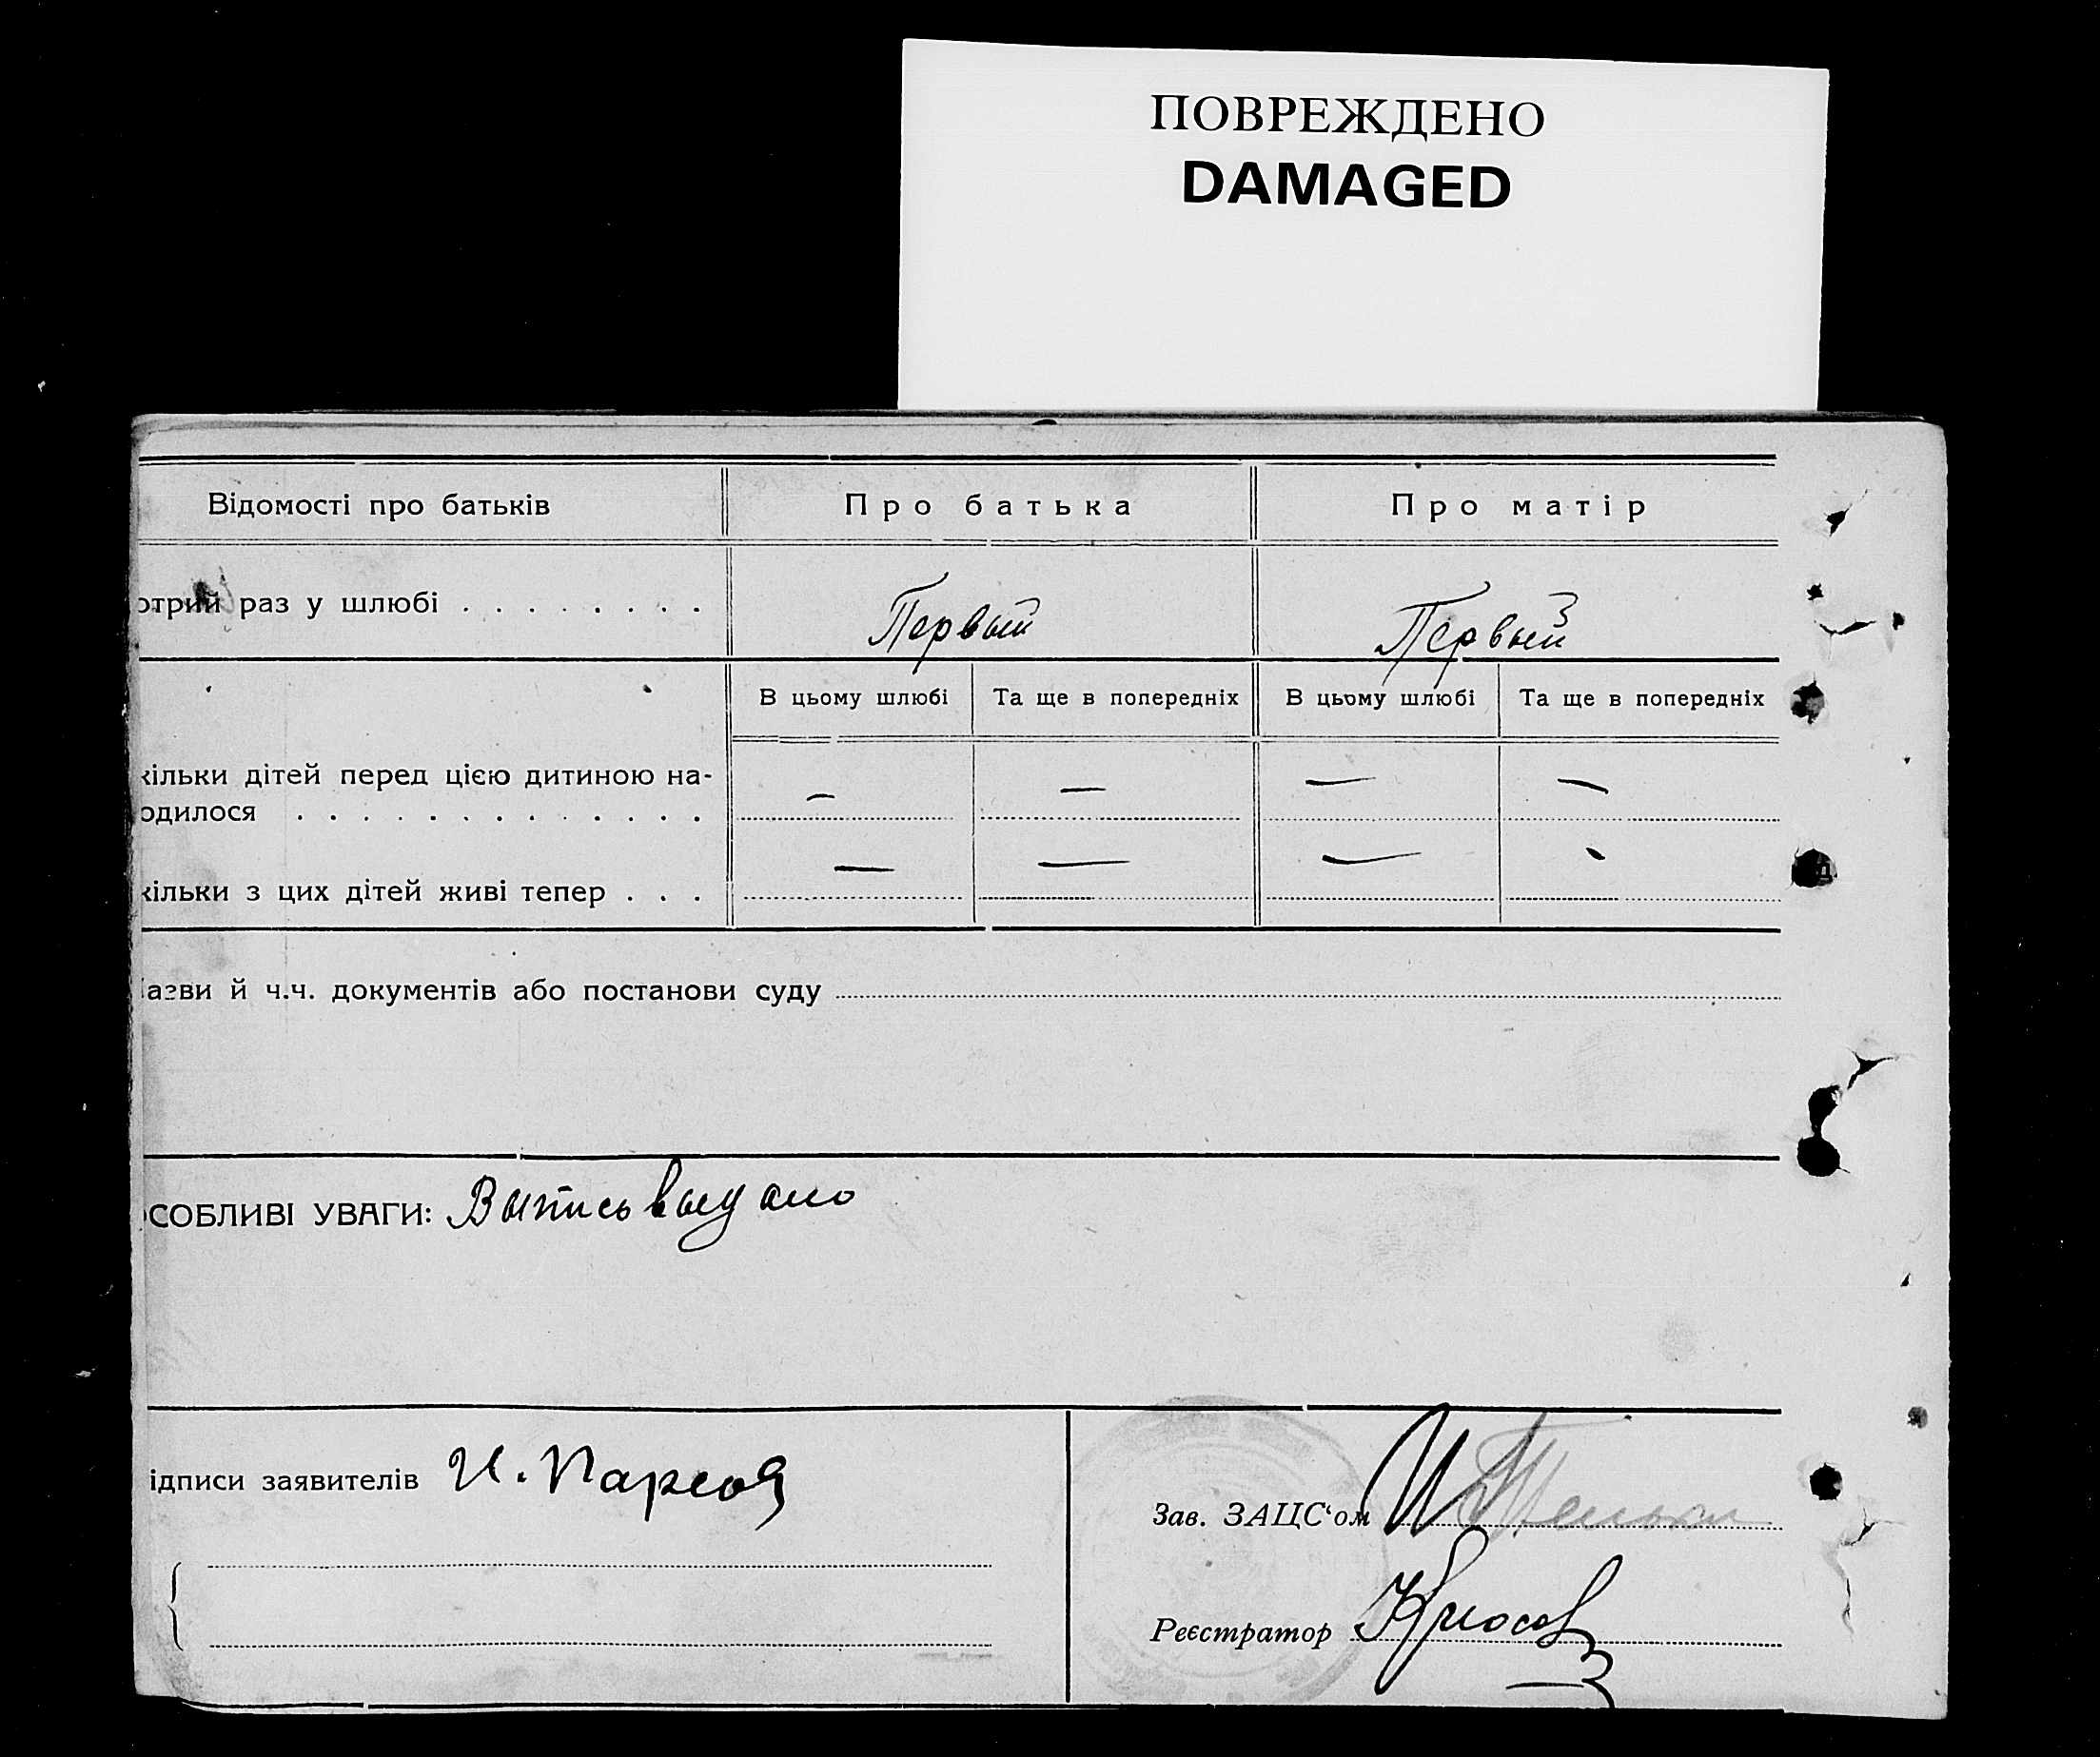 ПОВРЕЖДЕНО
DAMAGED
Відомості про батьків
Про батька
Про матір
отрий раз у шлюбі . . . . . . . .
Первый
Первый
В цьому шлюбі
Та ще в попередніх
В цьому шлюбі
Та ще в попередніх
кільки дітей перед цією дитиною на-
одилося . . . . . . . . . . . . .
— — — —
кільки з цих дітей живі тепер . . .
— — — -
азви й ч.ч. документів або постанови суду
СОБЛИВІ УВАГИ: Выпись выдано
ідписи заявителів И.
Зав. ЗАЦС‘ом
Реєстратор